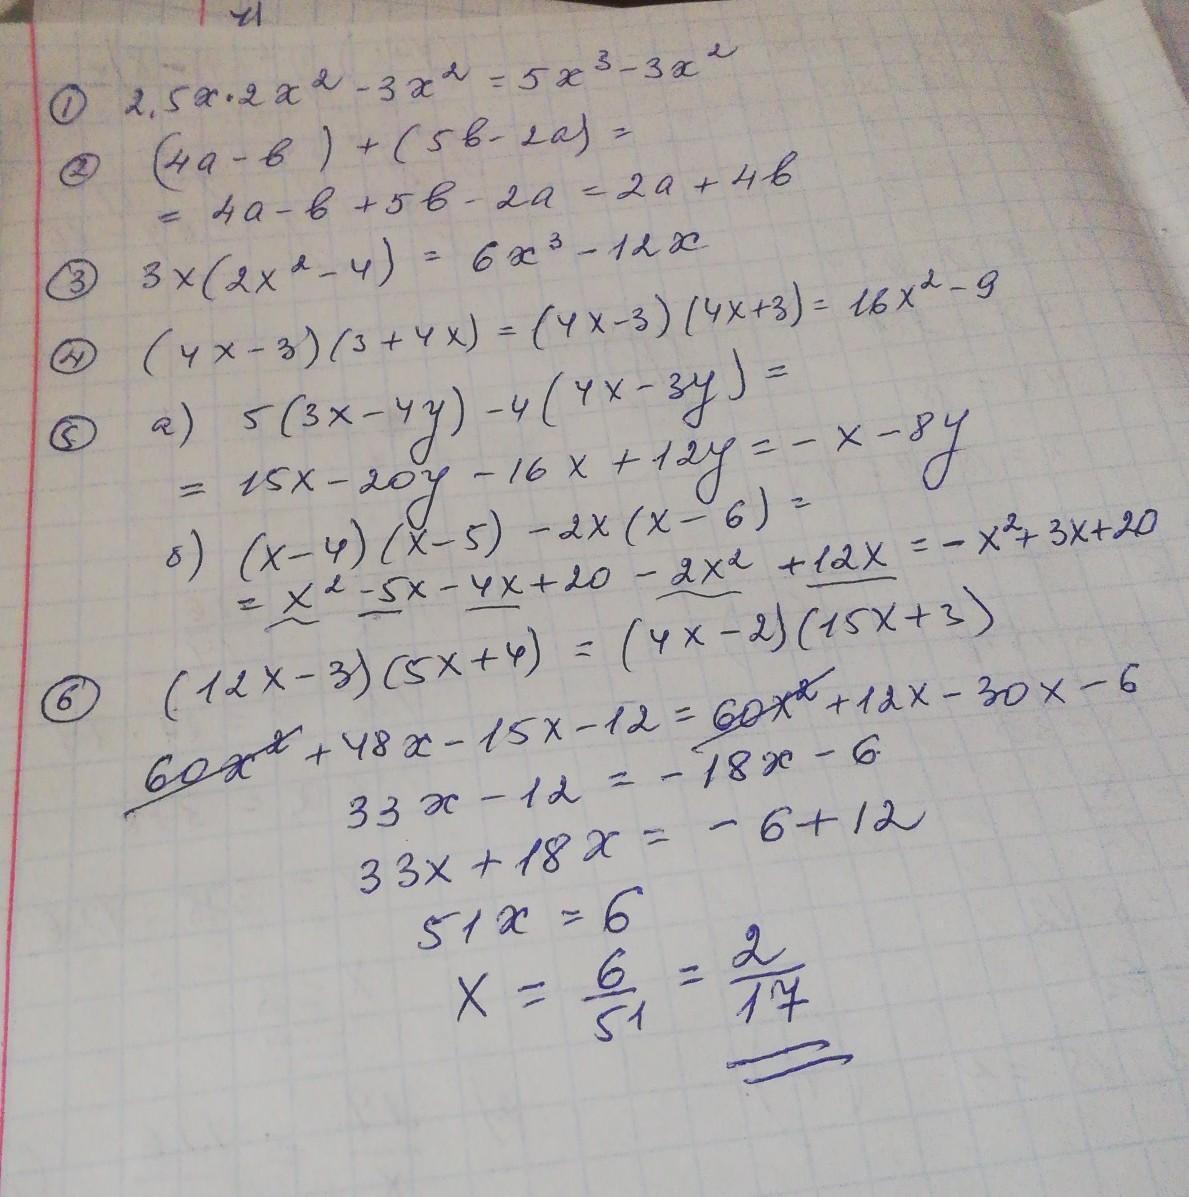 ① 2,5x·2x² - 3x² = 5x³ - 3x²
② (4a - b) + (5b - 2a) =
= 4a - b + 5b - 2a = 2a + 4b
③ 3x(2x² - 4) = 6x³ - 12x
④ (4x - 3)(3 + 4x) = (4x - 3)(4x + 3) = 16x² - 9
⑤ а) 5(3x - 4y) - 4(4x - 3y) =
= 15x - 20y - 16x + 12y = - x - 8y
б) (x - 4)(x - 5) - 2x(x - 6) =
= x² - 5x - 4x + 20 - 2x² + 12x = - x² + 3x + 20
⑥ (12x - 3)(5x + 4) = (4x - 2)(15x + 3)
60x² + 48x - 15x - 12 = 60x² + 12x - 30x - 6
33x - 12 = - 18x - 6
33x + 18x = - 6 + 12
51x = 6
x = 6/51 = 2/17